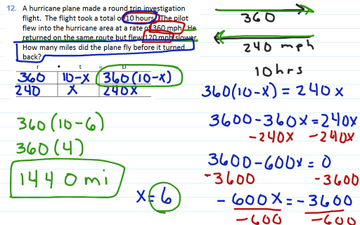 12. A hurricane plane made a round trip investigation
flight. The flight took a total of 10 hours. The pilot
flew into the hurricane area at a rate of 360 mph. He
returned on the same route but flew 120 mph slower.
How many miles did the plane fly before it turned
back?
r t D
360 10-x 360(10-x)
240 x 240x
360(10-6)
360(4)
1440 mi
x=6
360
240 mph
10 hrs
360(10-x)=240x
3600-360x=240x
-240x -240x
3600-600x=0
-3600 -3600
-600x=-3600
-600 -600